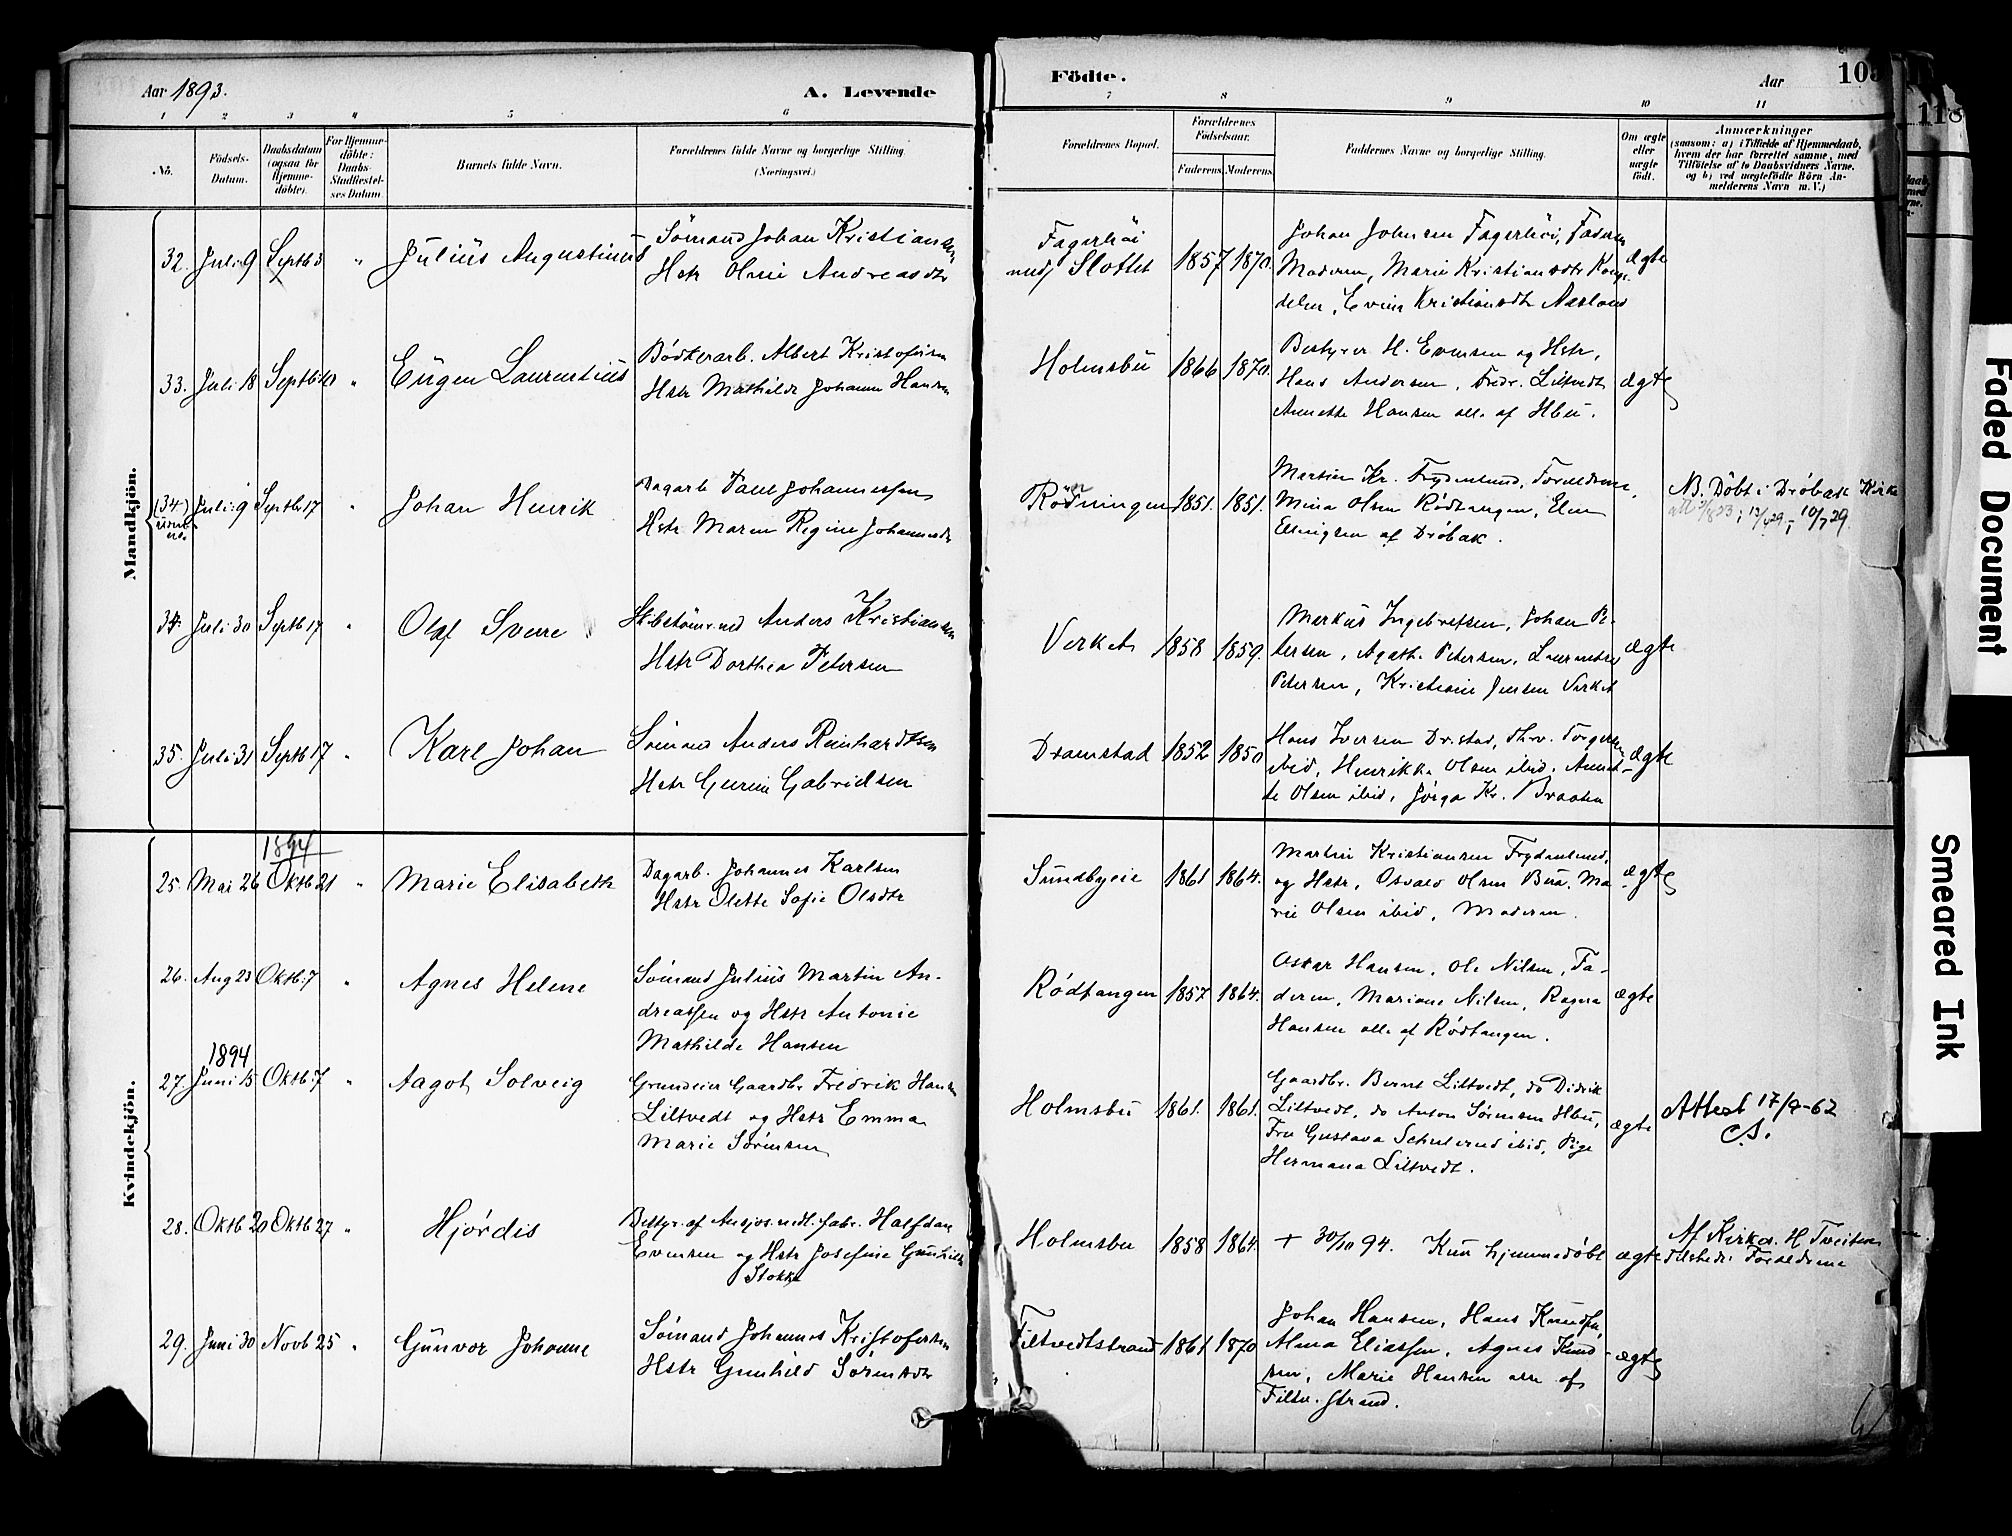 Aar 1893.
A. Levende
Födte.
Aar
108
118
1 2 3 4 5 6 7 8 9 10 11
No.
Födsels-Datum.
Daabsdatum (ogsaa for Hjemme-döbte).
For Hjemme-döbte: Daabs-Stadfæstel-ses Datum
Barnets fulde Navn.
Forældrenes fulde Navne og borgerlige Stilling.
(Næringsvei.)
Forældrenes Bopæl.
Forældrenes Födselsaar.
Faderens. Moderens.
Faddernes Navne og borgerlige Stilling.
Om ægte eller uægte födt.
Anmærkninger
(saasom: a) i Tilfælde af Hjemmedaab,
hvem der har forrettet samme, med
Tilföielse af to Daabsvidners Navne,
og b) ved uægtefödte Börn An-
melderens Navn m. V.)
Mandkjön.
32. Juli 9 Septb 3 " Julius Augustinus
Sömand Johan Kristiansen
Hstr Oline Andreasdtr
Fagerhöi
nedf Slottet
1857 1870.
Johan Johnsen Fagerhöi, Faderen
Moderen, Marie Kristiansdtr
Evine Kristiansdtr
ægte
33. Juli 18 Septb 10 " Eugen Laurentius
Bödkerarb. Albert Kristofersen
Hstr Mathilde Johanne Hansen
Holmsbu 1866 1870.
Bestyrer H. Evensen og Hstr,
Hans Andersen, Fredr. Liltvedt
Annette Hansen alle af Hbu.
ægte
(34) Juli 9 Septb 17 " Johan Henrik
Dagarb Paul Johannessen
Hstr Maren Regine Johannesdtr
Rödningen 1851. 1851.
Martin Kr. Frydenlund, Forældrene,
Mina Olsen Rödtangen, Elen
Ellingsen af Dröbak.
NB. Döbt i Dröbak Kirke
12/4 29, 10/7 29.
34. Juli 30 Septb 17 " Olaf Sverre
Skibstömmd Anders Kristiansen
Hstr Dorthea Petersen
Verket 1858 1859.
Markus Ingebretsen, Johan Pe-
tersen, Agath. Petersen, Laurentse
Petersen, Kristiane Jensen Verket
ægte
35. Juli 31 Septb 17 " Karl Johan
Sömand Anders Reinhardtsen
Hstr Gurine Gabrielsen
Dramstad 1852 1850
Hans Iversen Dr.stad, Thrv. Torgersen
ibid, Henrikke Olsen ibid, Annet-
te Olsen ibid, Jörga Kr. Braaten
ægte
Kvindekjön.
1894
25. Mai 26 Oktb 21 " Marie Elisabeth
Dagarb. Johannes Karlsen
Hstr Olette Sofie Olsdtr
Sundbyeie 1861 1864.
Martin Kristiansen Frydenlund,
og Hstr, Osvald Olsen Bua, Ma-
rie Olsen ibid, Moderen.
ægte
26. Aug 23 Oktb: 7 " Agnes Helene
Sömand Julius Martin An-
dreassen og Hstr Antonie
Mathilde Hansen
Rödtangen 1857 1864.
Oskar Hansen, Ole Nilsen, Fa-
deren, Mariane Nilsen, Ragna
Hansen alle af Rödtangen.
ægte
1894
27. Juni 15 Oktb: 7 " Aagot Solveig
Grundeier Gaardbr Fredrik Hansen
Liltvedt og Hstr Emma
Marie Sörensen
Holmsbu 1861. 1861.
Gaardbr. Bernt Liltvedt, do Didrik
Liltvedt, do Anton Sörensen Hbu,
Fru Gustava Schulerud ibid, Pige
Hermana Liltvedt.
ægte
Attest 17/9-62
28. Oktb 20 Oktb 27 " Hjördis
Bestyr. af Ansjos.nedl.fabr. Halfdan
Evensen og Hstr Josefine Gunhilde
Stokke
Holmsbu 1858 1864.
+ 30/10 94. Kun hjemmedöbt
ægte
Af Kirkes. H Tveiten.
Tilstede: Forældrene
29. Juni 30 Novb 25 " Gunvor Johanne
Sömand Johannes Kristofersen
Hstr Gunhild Sörensdtr
Filtvedtstrand 1861 1870
Johan Hansen, Hans Knudsen,
Alma Eliassen, Agnes Knud-
sen, Marie Hansen alle af
Filtv. strand.
ægte
Faded Document
Smeared Ink